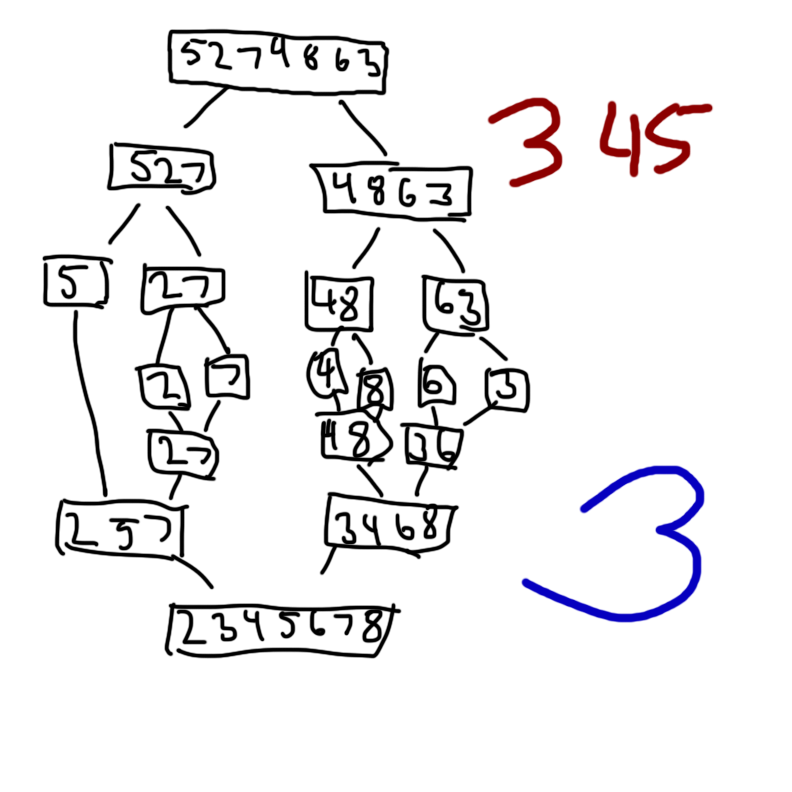 5274863
345
527
4863
5
27
48
63
2
7
4
8
6
3
27
48
36
257
3468
3
2345678